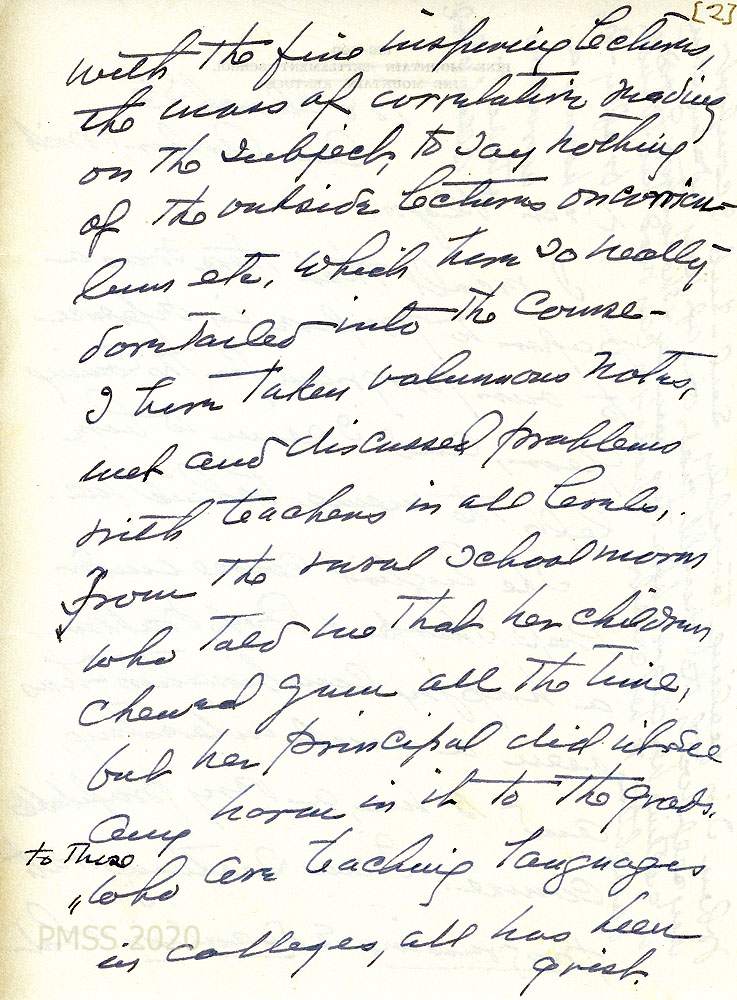 [2]
with the fine inspiring lectures,
the mass of correlative reading
on the subject, to say nothing
of the outside lectures on curricu-
lum etc, which have so neatly
dovetailed into the course-
I have taken voluminous notes,
met and discussed problems
with teachers in all levels,
from the rural school marm
who told me that her children
chewed gum all the time,
but her principal did not see
any harm in it to the grads.
to those
who are teaching languages
in colleges, all has been
grist.
PMSS 2020